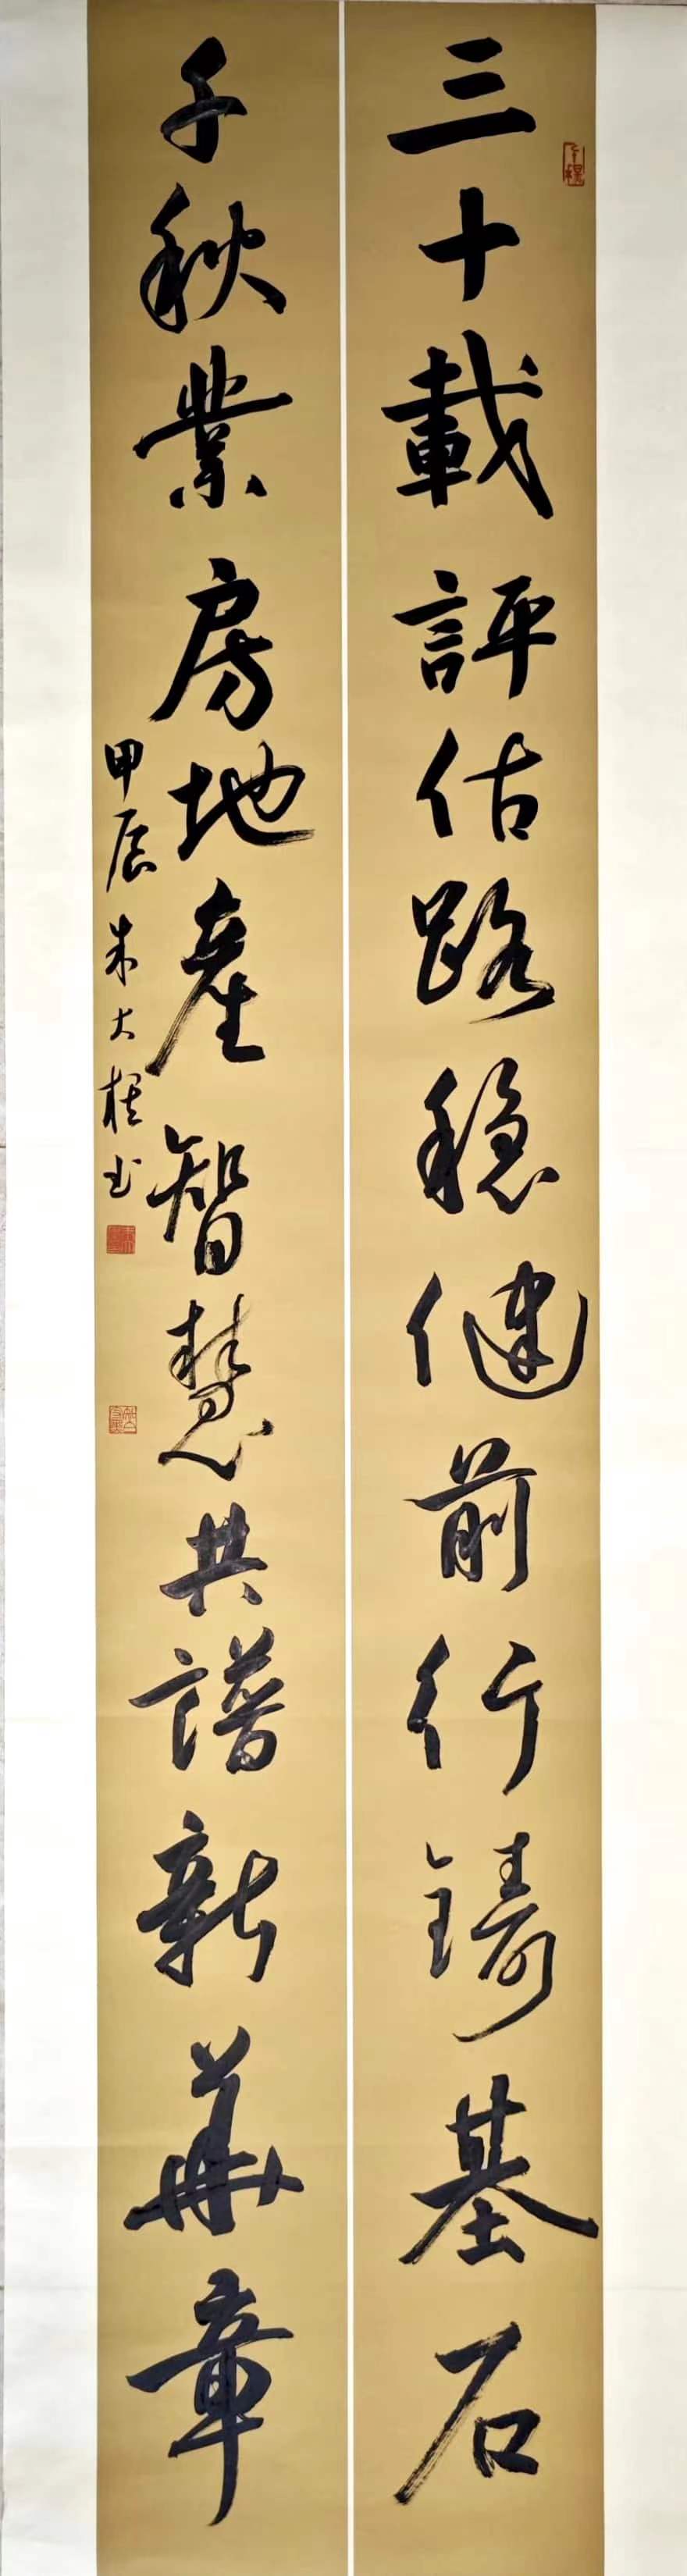 三十載評估路穩健前行鑄基石
千秋業房地產智慧共譜新華章
甲辰朱大根书